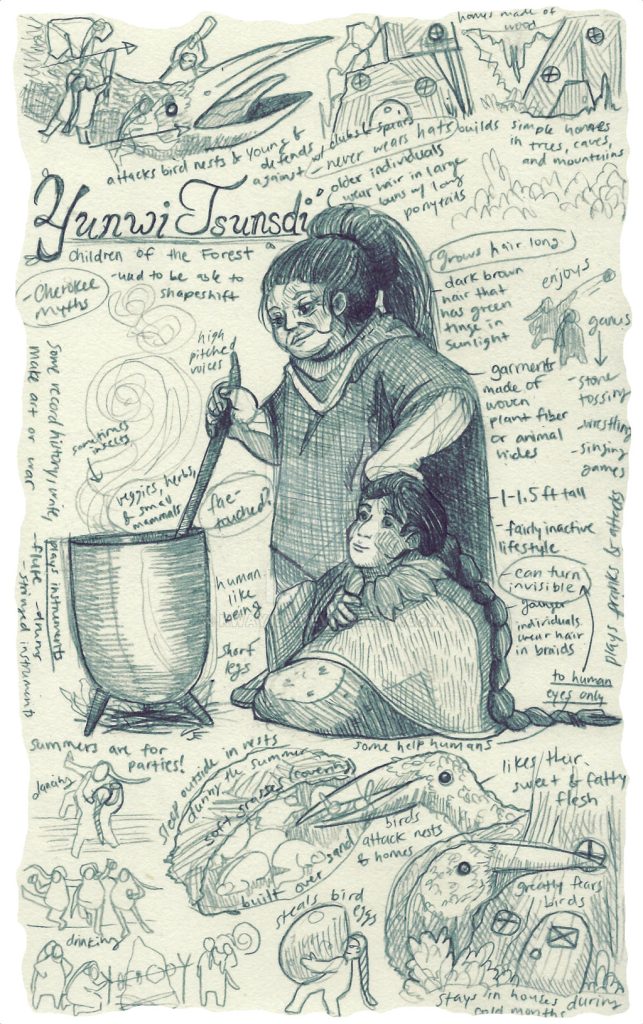 homes made of
wood
attacks bird nests & young &
defends
against w/ clubs & spears
- never wears hats
builds
simple homes
in trees, caves,
and mountains
older individuals
wear hair in large
buns w/ long
ponytails
Yunwi Tsunsdi'
Children of the Forest
- used to be able to
shapeshift
- Cherokee
myths
grows hair long
dark brown
hair that
has green
tinge in
sunlight
enjoys
games
- stone
tossing
- wrestling
- singing
games
high
pitched
voices
garments
made of
woven
plant fiber
or animal
hides
some record history, write,
make art or war
sometimes
insects
veggies, herbs,
& small
mammals
fae-
touched?
- 1-1.5 ft tall
- fairly inactive
lifestyle
- can turn
invisible
- younger
individuals
wear hair
in braids
to human
eyes only
plays pranks & attacks
human
like
being
short
legs
plays instruments
- flute - drums
- stringed instruments
summers are for
parties!
dancing
drinking
sleep outside in nests
during the summer
soft grasses (covering)
sand
built over
some help humans
birds
attack nests
& homes
likes their
sweet & fatty
flesh
greatly fears
birds
steals bird
eggs
stays in houses during
cold months